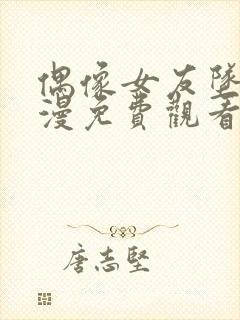 偶像女友墜
漫免費觀看
唐志堅